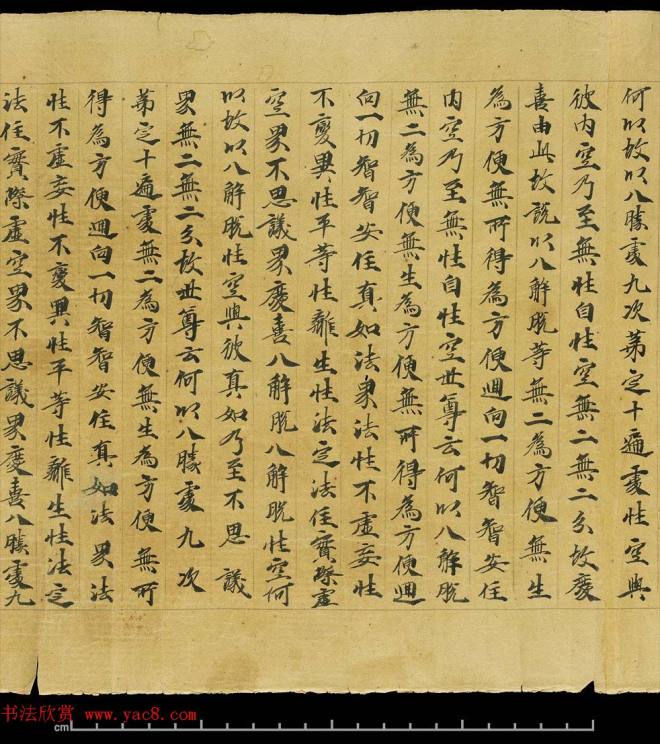 何以故以八勝處九次第定十遍處性空與
彼内空乃至無性自性空無二無二分故慶
喜由此故說以八解脫等無二為方便無生
為方便無所得為方便迴向一切智智安住
内空乃至無性自性空世尊云何以八解脫
無二為方便無生為方便無所得為方便迴
向一切智智安住真如法界法性不虛妄性
不變異性平等性離生性法定法住實際虛
空界不思議界慶喜八解脫八解脫性空何
以故以八解脫性空與彼真如乃至不思議
界無二無二分故世尊云何以八勝處九次
第定十遍處無二為方便無生為方便無所
得為方便迴向一切智智安住真如法界法
性不虛妄性不變異性平等性離生性法定
法住實際虛空界不思議界慶喜八勝處九
书法欣赏 www.yac8.com
cm